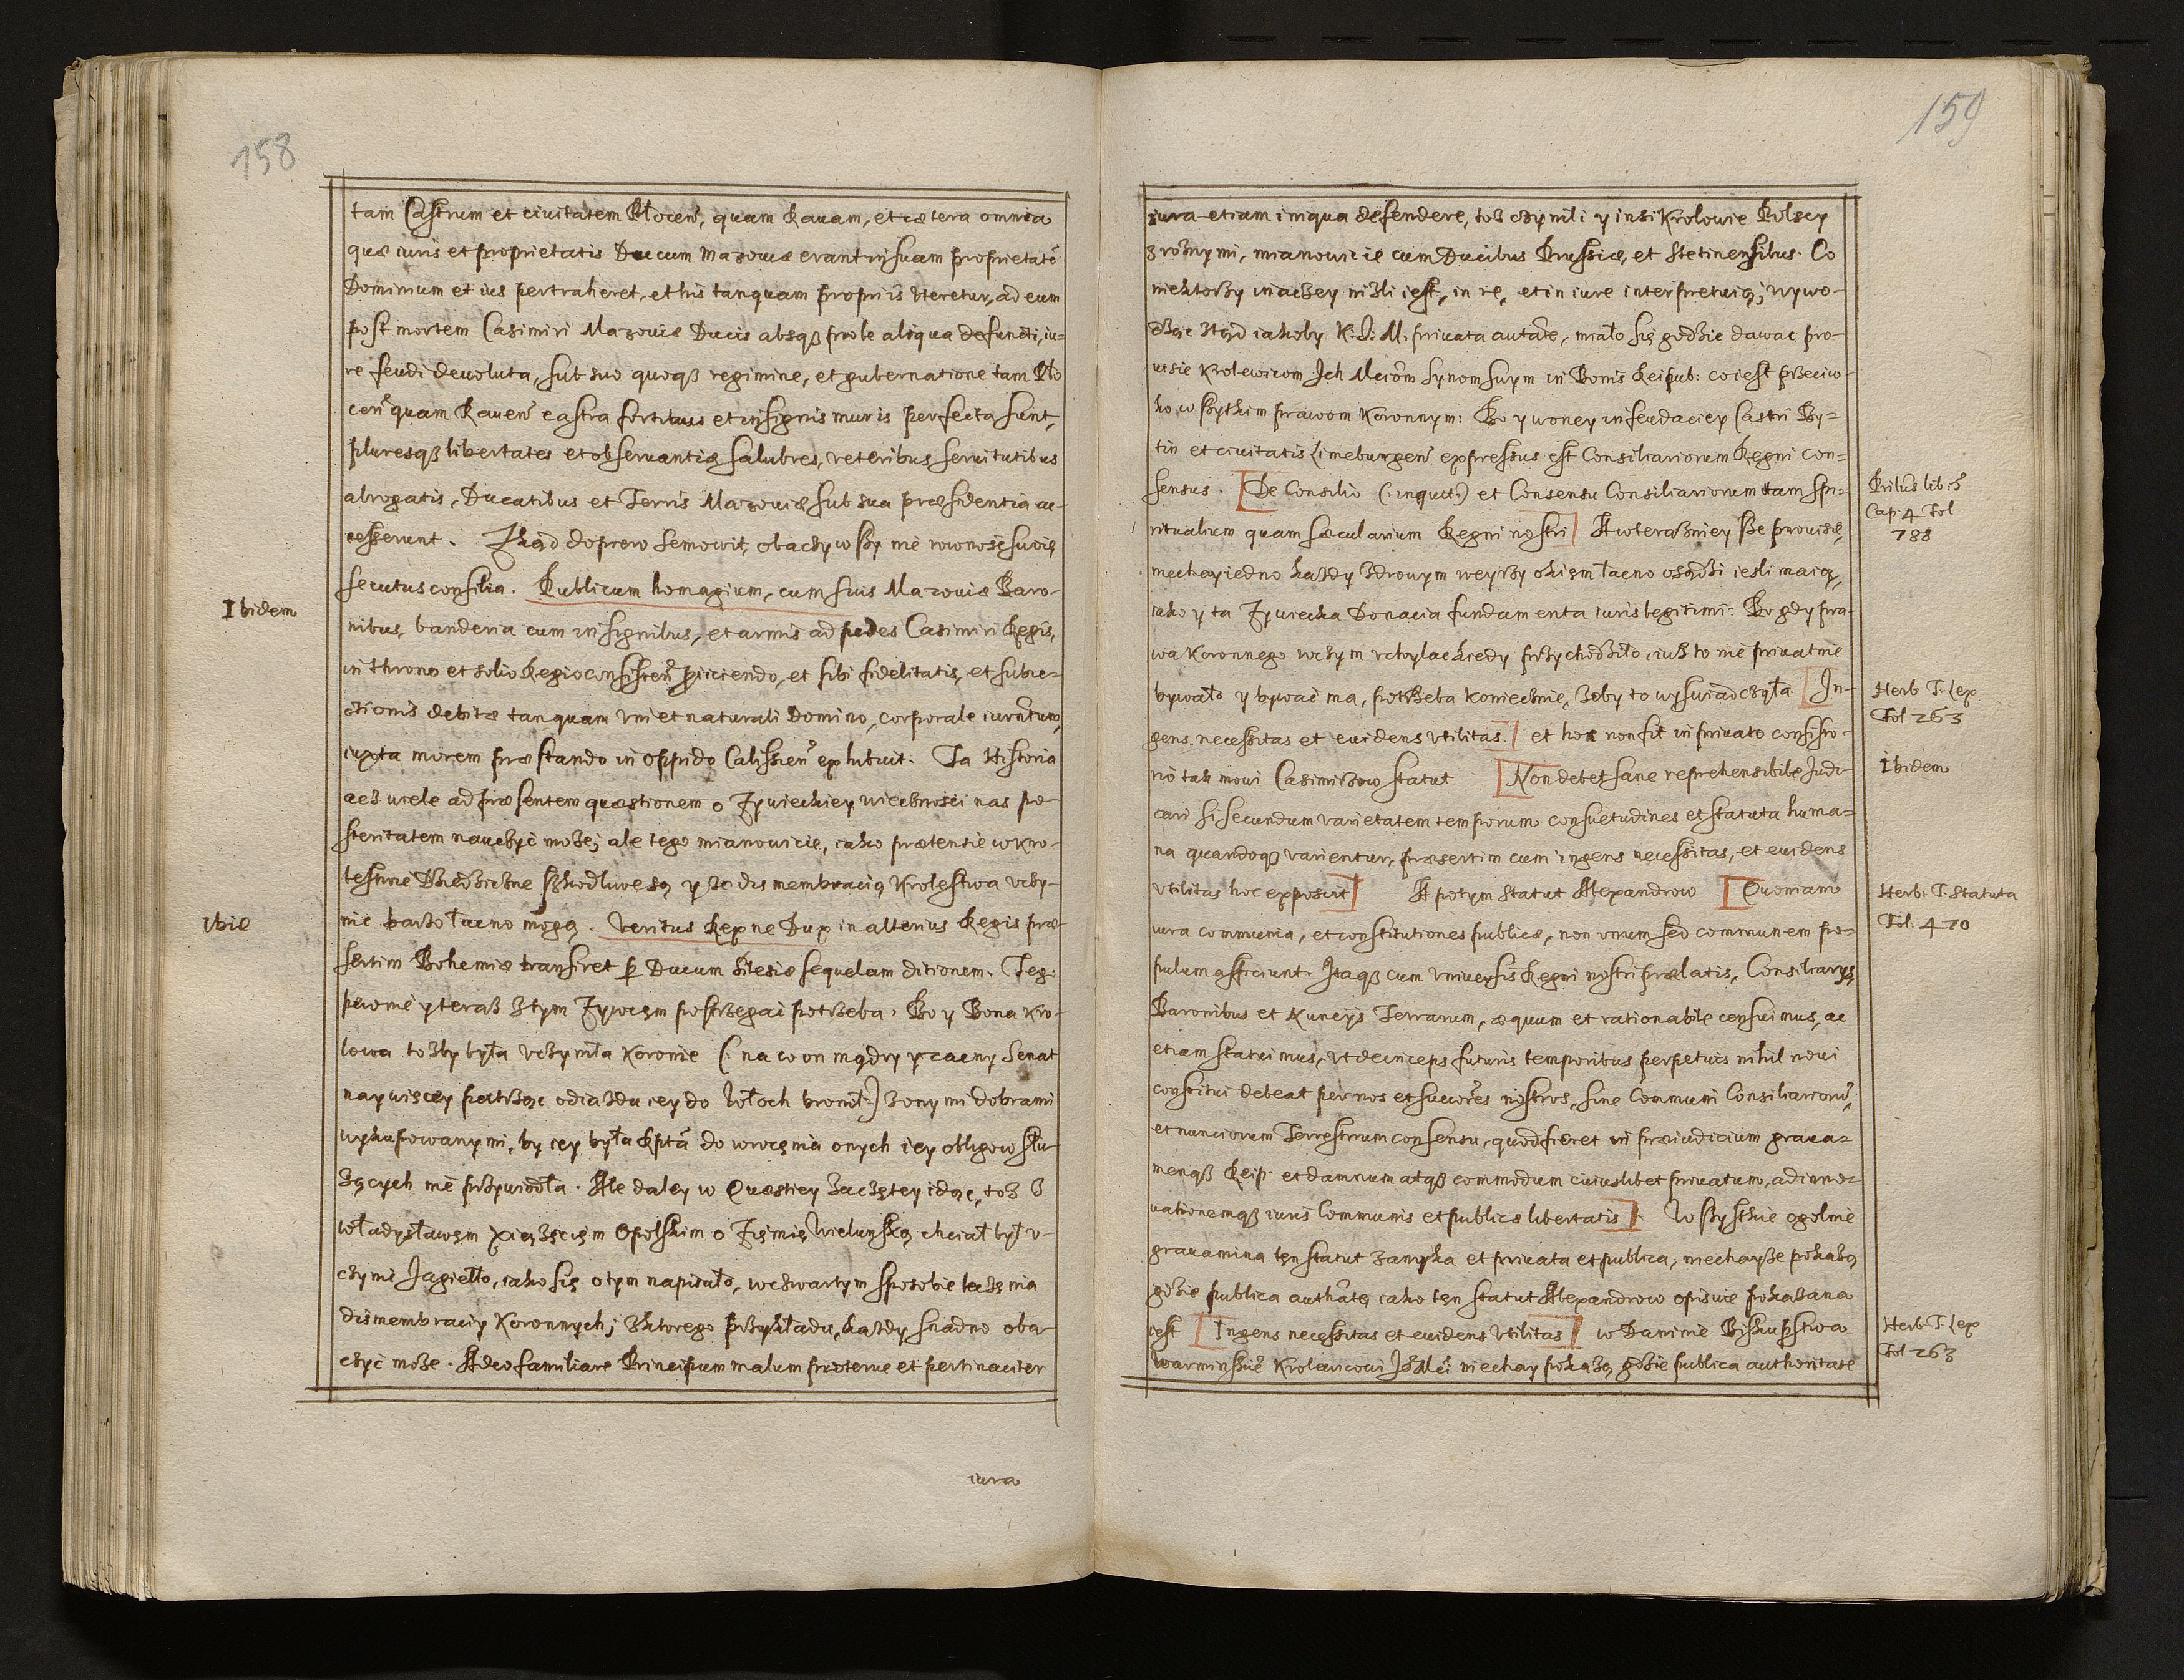 158
tam Castrum et ciuitatem Płocen̄, quam Rauam, et cætera omnia
quæ iuris et proprietatis Ducum Mazouiæ erant in suam proprietatē
Dominium et ius pertraheret, et his tanquam propriis vteretur, ad eum
post mortem Casimiri Mazouiæ Ducis absqꝫ prole aliqua defuncti, iu-
re feudi deuoluta, sub suo quoqꝫ regimine, et gubernatione tam Pło
cen̄ quam Rauen̄ castra fortibus et insignis muris perfecta sunt,
pluresqꝫ libertates et obseruantiæ salubres, veteribus seruitutibus
abrogatis, Ducatibus et Terris Mazouiæ sub sua præsidentia ac-
cesserunt. Zkąd dopiero Semowit, obaczywszy nie rowność swoię
Ibidem
secutus consilia. Publicum homagium, cum suis Mazouiæ Baro-
nibus, banderia cum insignibus, et armis ad pedes Casimiri Regis,
in throno et solio Regio consisten̄ proiiciendo, et sibi fidelitatis, et subie-
ctionis debitæ tanquam vni et naturali Domino, corporale iurn̄tum,
iuxta morem præstando in oppido Calissien̄ exhibuit. Ta Historia
acz wiele ad præsentem quæstionem o Zywieckiey wiecznosci nas po-
steritatem nauczyć może; ale tego mianowicie, iako prætensie w Kro-
lestwie Dziedziczne szkodliwe są y że dismembracią Krolestwa vczy-
Ibid
nic barzo łacno mogą. Veritus Rex ne Dux in alterius Regis præ-
sertim Bohemiæ transiret per Ducum Silesiæ sequelam ditionem. Tego
pewnie y teraz z tym Zywcem postrzegać potrzeba. Bo y Bona Kro-
lowa tożby była vczyniła Koronie (: na co on mądry y zacny Senat
naywięcey patrząc odiazdu iey do Włoch bronił:) z onymi dobrami
wykupowanymi, by iey była Rptā do wrocęnia onych iey obligow słu-
żących nie przywiodła. Ale daley w Quæstiey zaczętey idąc, toż z
Władysławem Xiążęciem Opolskim o Ziemię Wielunską chciał był v-
czynić Jagiełło, iako się o tym napisało, w czwartym sposobie leczęnia
dismembraciy Koronnych; z ktorego przykładu, każdy snadno oba-
czyć może. Adeo familiare Principum malum proterue et pertinaciter
iura
159
iura etiam iniqua defendere, toż czynili y insi Krolowie Polscy
z roznymi, mianowicie cum Ducibus Prussiæ, et Stetinensibus. Co
niektorzy inaczey niżli iest, in re, et in iure interpretuią; wywo-
dząc ztąd iakoby K. J. M. priuata autāte, miało się godzić dawać pro-
wisie Krolewicom Jch Mciōm Synom suym in Bonis Reipub: co iest przeciw-
ko wszytkim prawom Koronnym: Bo y w oney infeudaciey Castri By-
tin et ciuitatis Limeburgen̄ expressus est Consiliariorum Regni con-
sensus. [De Consilio (:inquit:) et Consensu Consiliariorum tam spi-
Prilus lib: 5
Cap: 4 Fol
788
ritualium quam sæcularium Regni nostri] A w teraźniey sze prouisie,
niechay iedno każdy zdrowym weyrzy okiem łacno osądzi iesli maią,
iako y ta Zywiecka Donacia fundamenta iuris legitimi: Bo gdy pra-
wa Koronnego w czym vchylać kiedy przychodziło, iuż to nie priuatnie
bywało y bywać ma, potrzeba koniecznie, żeby to wyswiadczyła [In-
Herb T. lex
Fol 263
gens necessitas et euidens vtilitas] et hoc non fit in priuato consisto-
rio tak mowi Casimirzow statut [Non debet sane reprehensibile Judi-
Ibidem
cari si secundum varietatem temporum consuetudines et statuta huma-
na quandoqꝫ varientur, præsertim cum ingens necessitas, et euidens
vtilitas hoc exposcit] A potym Statut Alexandrow [Quoniam
Herb. T. Statuta
Fol: 470
iura communia, et constitutiones publicæ, non vnum sed communem po-
pulum astriciunt. Itaqꝫ cum vniuersis Regni nostri prælatis, Consiliarys,
Baronibus et Nuncijs Terrarum, æquum et rationabile censuimus, ac
etiam statuimus, vt deinceps futuris temporibus perpetuis nihil noui
constitui debeat per nos et succores̄ nostros, sine Communi Consiliariorū,
et nunciorum Terrestrium consensu, quod fieret in præiudicium graua-
menqꝫ Reip. et damnum atqꝫ commodum cuiuslibet priuatum, ad inno-
uationemqꝫ iuris Communis et publicæ libertatis]. Wszystkie ogolnie
grauamina ten statut zamyka et priuata et publica; niechayże pokażą
gdzie publica authāte, iako ten statut Alexandrow opisuie pokazana
iest [Ingens necessitas et euidens Vtilitas] w Daninie Biskupstwa
Herb T. lex
Fol 263
Warminskie° Krolewicowi JºMci niechay pokażą gdzie publica authoritate